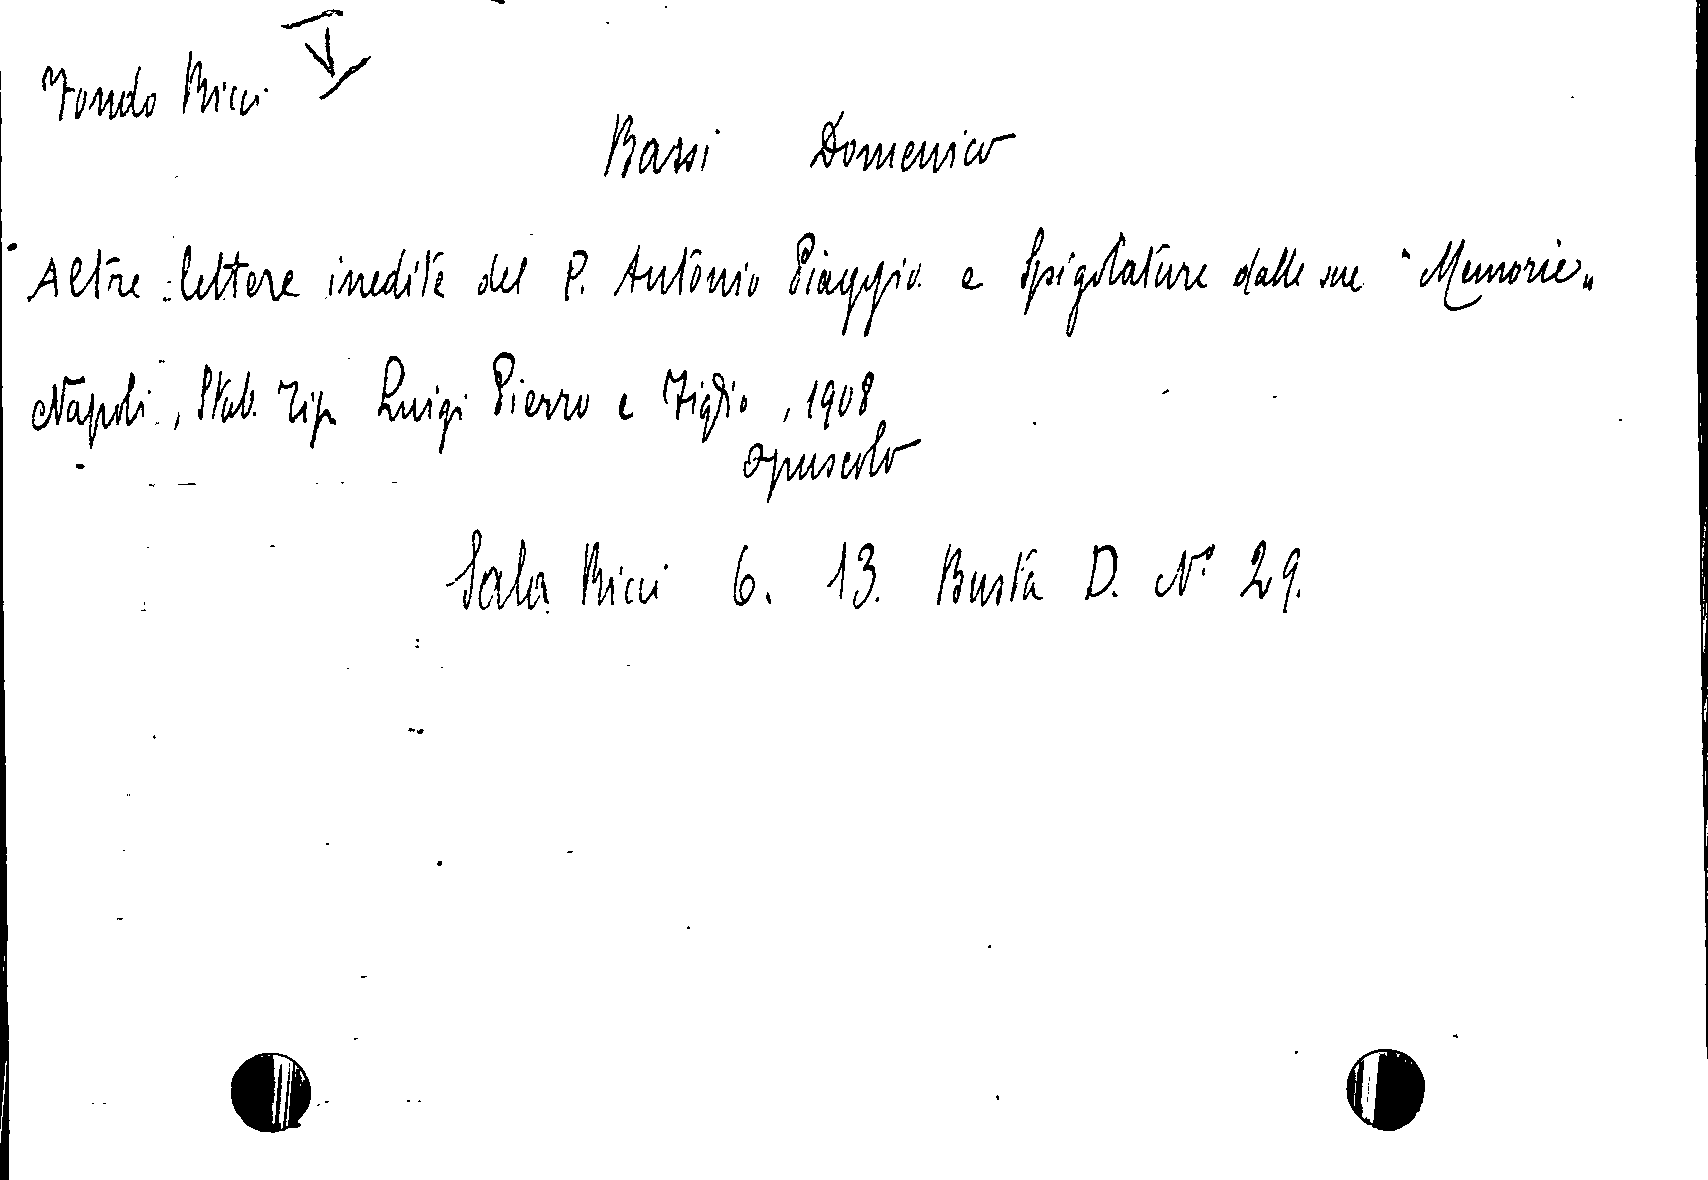 Fondo Ricci V
Bassi Domenico
Altre lettere inedite del P. Antonio Piaggio e Spigolature dalle sue "Memorie„
Napoli, Stab. Tip. Luigi Pierro e Figlio, 1908
opuscolo
Sala Ricci 6. 13. Busta D. N° 29.